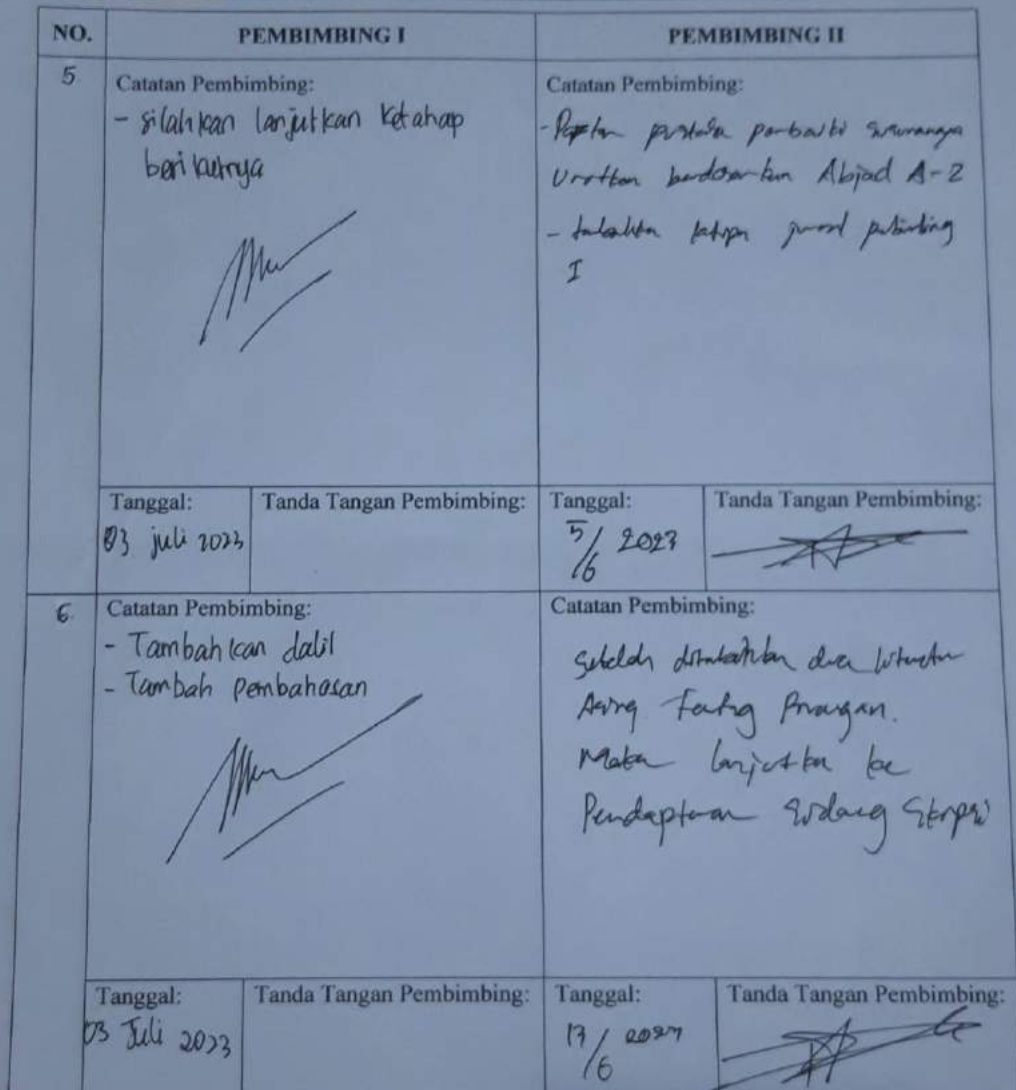 NO.
PEMBIMBING I
PEMBIMBING II
5
Catatan Pembimbing:
- silahkan lanjutkan ketahap
berikutnya
Catatan Pembimbing:
- pustaka perbaiki susunannya
Urutkan berdasarkan Abjad A-Z
- kutipan jurnal pembimbing
I
Tanggal:
03 juli 2023
Tanda Tangan Pembimbing:
Tanggal:
5/6 2023
Tanda Tangan Pembimbing:
6.
Catatan Pembimbing:
- Tambahkan dalil
- Tambah pembahasan
Catatan Pembimbing:
Setelah ditambahkan dua
Maka lanjutkan ke
Pendaptaran Sidang Skripsi
Tanggal:
03 Juli 2023
Tanda Tangan Pembimbing:
Tanggal:
Tanda Tangan Pembimbing: